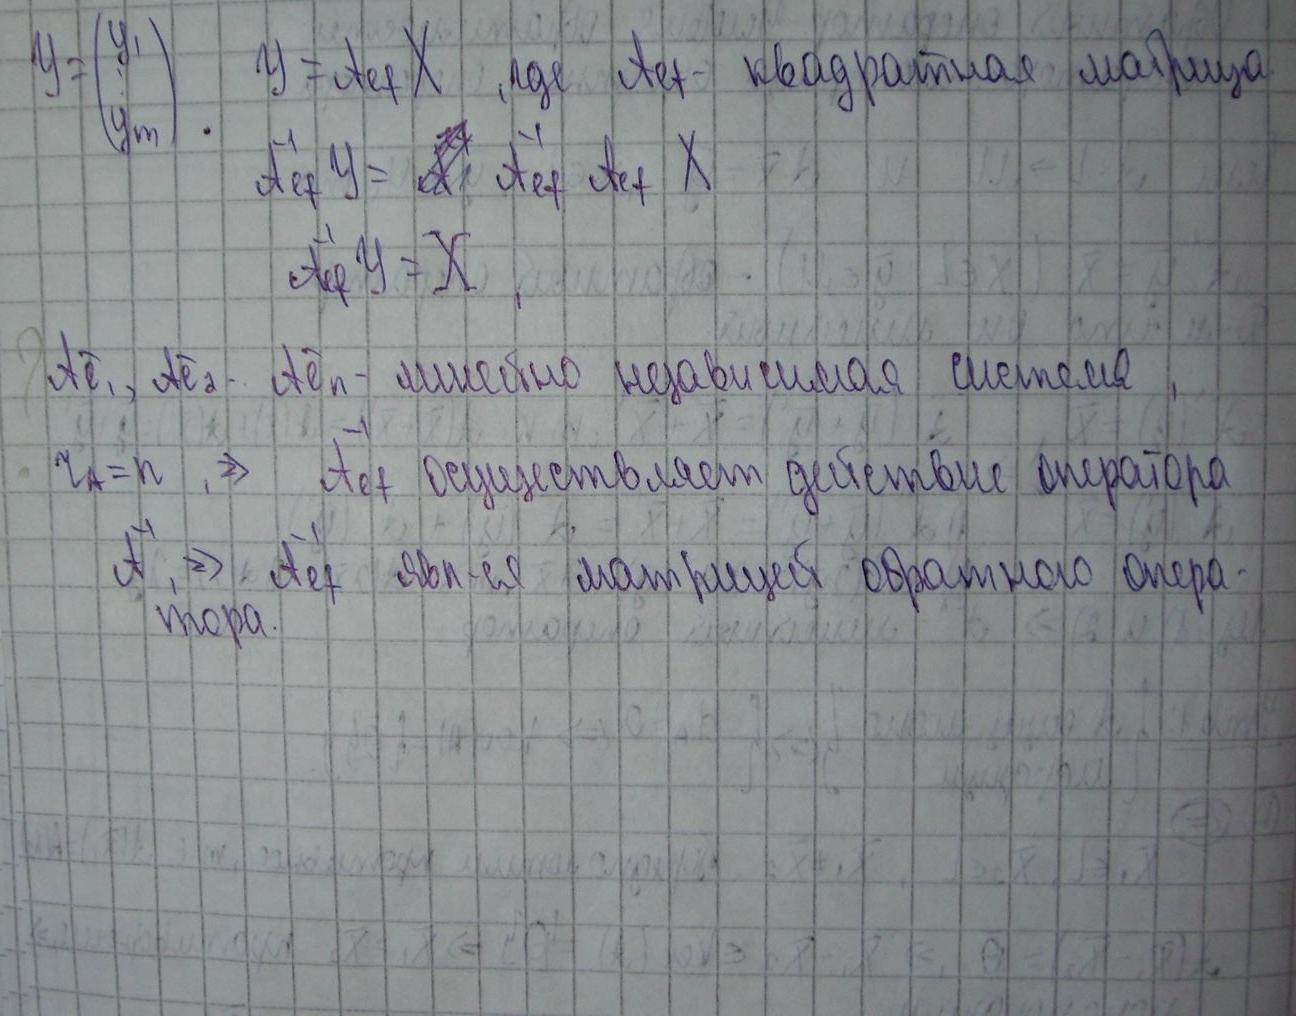 Y = (y₁ ⋮ yₘ). Y = A_ef X, где A_ef - квадратная матрица
A⁻¹_ef Y = A⁻¹_ef A_ef X
A⁻¹_ef Y = X,
Aē₁, Aē₂.. Aēₙ - линейно независимая система,
r_A = n, ⇒ A⁻¹_ef осуществляет действие оператора
A⁻¹, ⇒ A⁻¹_ef явл-ся матрицей обратного опера-
тора.